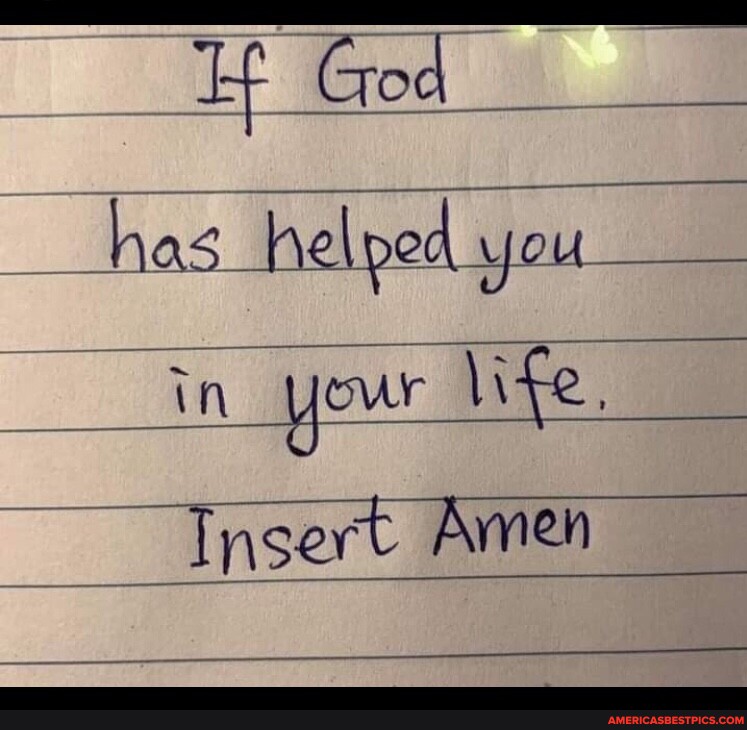 If God
has helped you
in your life.
Insert Amen
AMERICASBESTPICS.COM